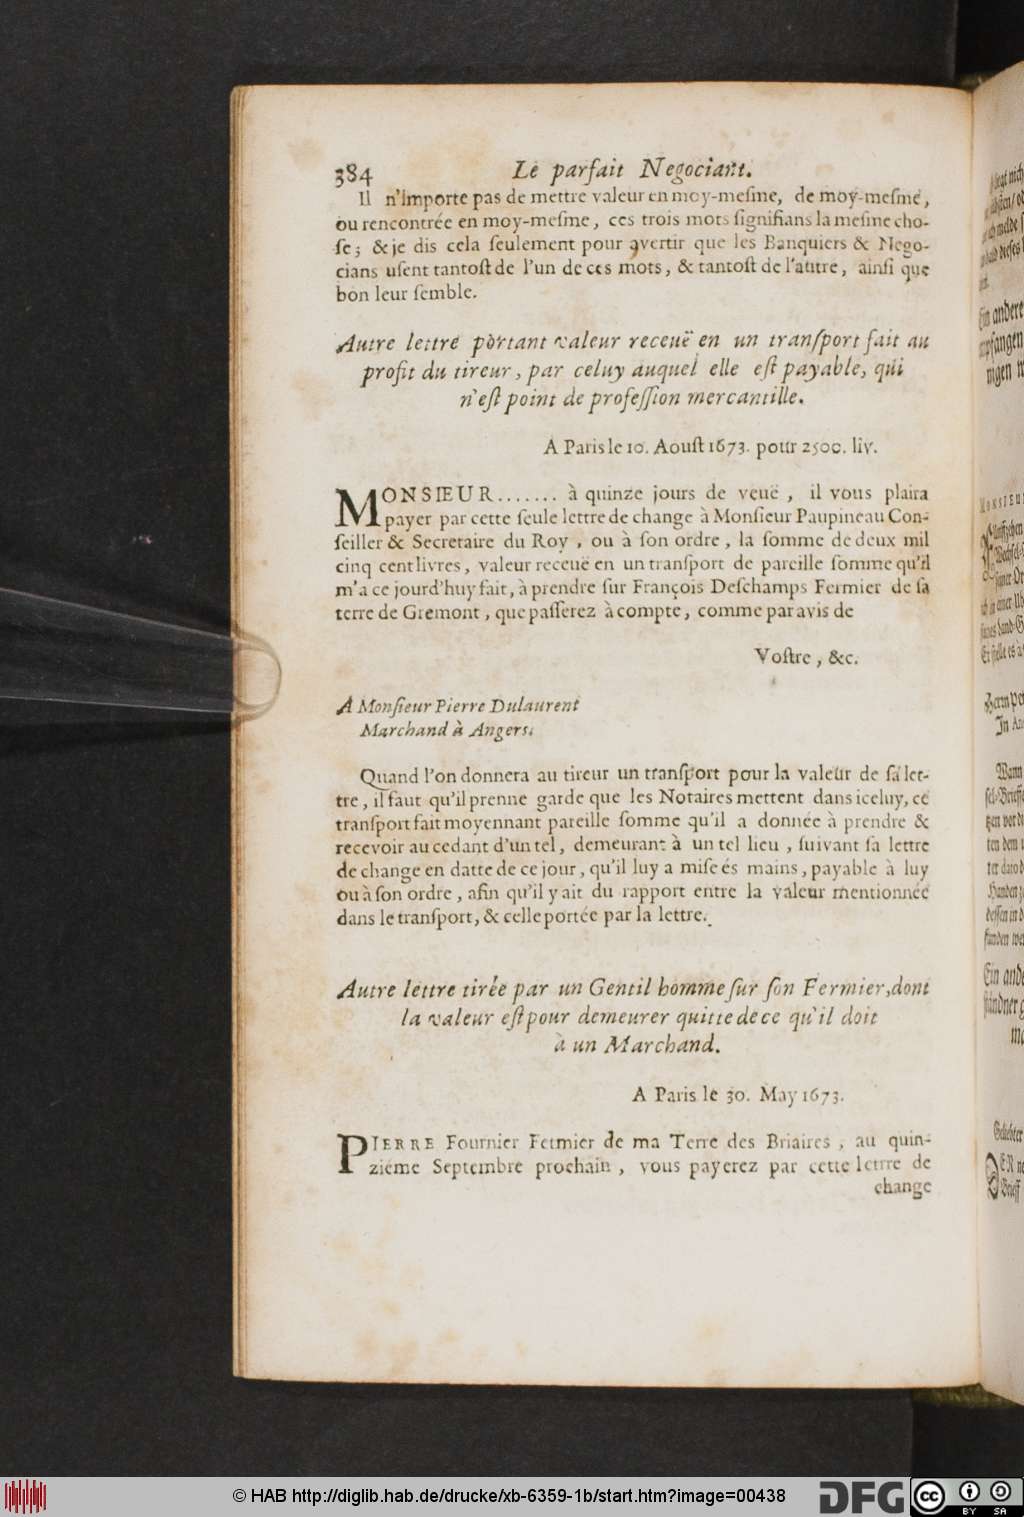 384 Le parfait Negociant.
Il n'importe pas de mettre valeur en moy-meſme, de moy-meſme,
ou rencontrée en moy-meſme, ces trois mots ſignifians la meſme cho-
ſe; & je dis cela ſeulement pour avertir que les Banquiers & Nego-
cians uſent tantoſt de l'un de ces mots, & tantoſt de l'autre, ainſi que
bon leur ſemble.
Autre lettre portant valeur receuë en un tranſport fait au
profit du tireur, par celuy auquel elle eſt payable, qui
n'eſt point de profeſſion mercantille.
A Paris le 10. Aouſt 1673. pour 2500. liv.
MONSIEUR....... à quinze jours de veuë, il vous plaira
payer par cette ſeule lettre de change à Monſieur Paupineau Con-
ſeiller & Secretaire du Roy, ou à ſon ordre, la ſomme de deux mil
cinq cent livres, valeur receuë en un tranſport de pareille ſomme qu'il
m'a ce jourd'huy fait, à prendre ſur François Deſchamps Fermier de ſa
terre de Gremont, que paſſerez à compte, comme par avis de
Voſtre, &c.
A Monſieur Pierre Dulaurent
Marchand à Angers.
Quand l'on donnera au tireur un tranſport pour la valeur de ſa let-
tre, il faut qu'il prenne garde que les Notaires mettent dans iceluy, ce
tranſport fait moyennant pareille ſomme qu'il a donnée à prendre &
recevoir au cedant d'un tel, demeurant à un tel lieu, ſuivant ſa lettre
de change en datte de ce jour, qu'il luy a miſe és mains, payable à luy
ou à ſon ordre, afin qu'il y ait du rapport entre la valeur mentionnée
dans le tranſport, & celle portée par la lettre.
Autre lettre tirée par un Gentil homme ſur ſon Fermier, dont
la valeur eſt pour demeurer quitte de ce qu'il doit
à un Marchand.
A Paris le 30. May 1673.
PIERRE Fournier Fermier de ma Terre des Briaires, au quin-
ziéme Septembre prochain, vous payerez par cette lettre de
change
© HAB http://diglib.hab.de/drucke/xb-6359-1b/start.htm?image=00438
DFG
cc BY SA